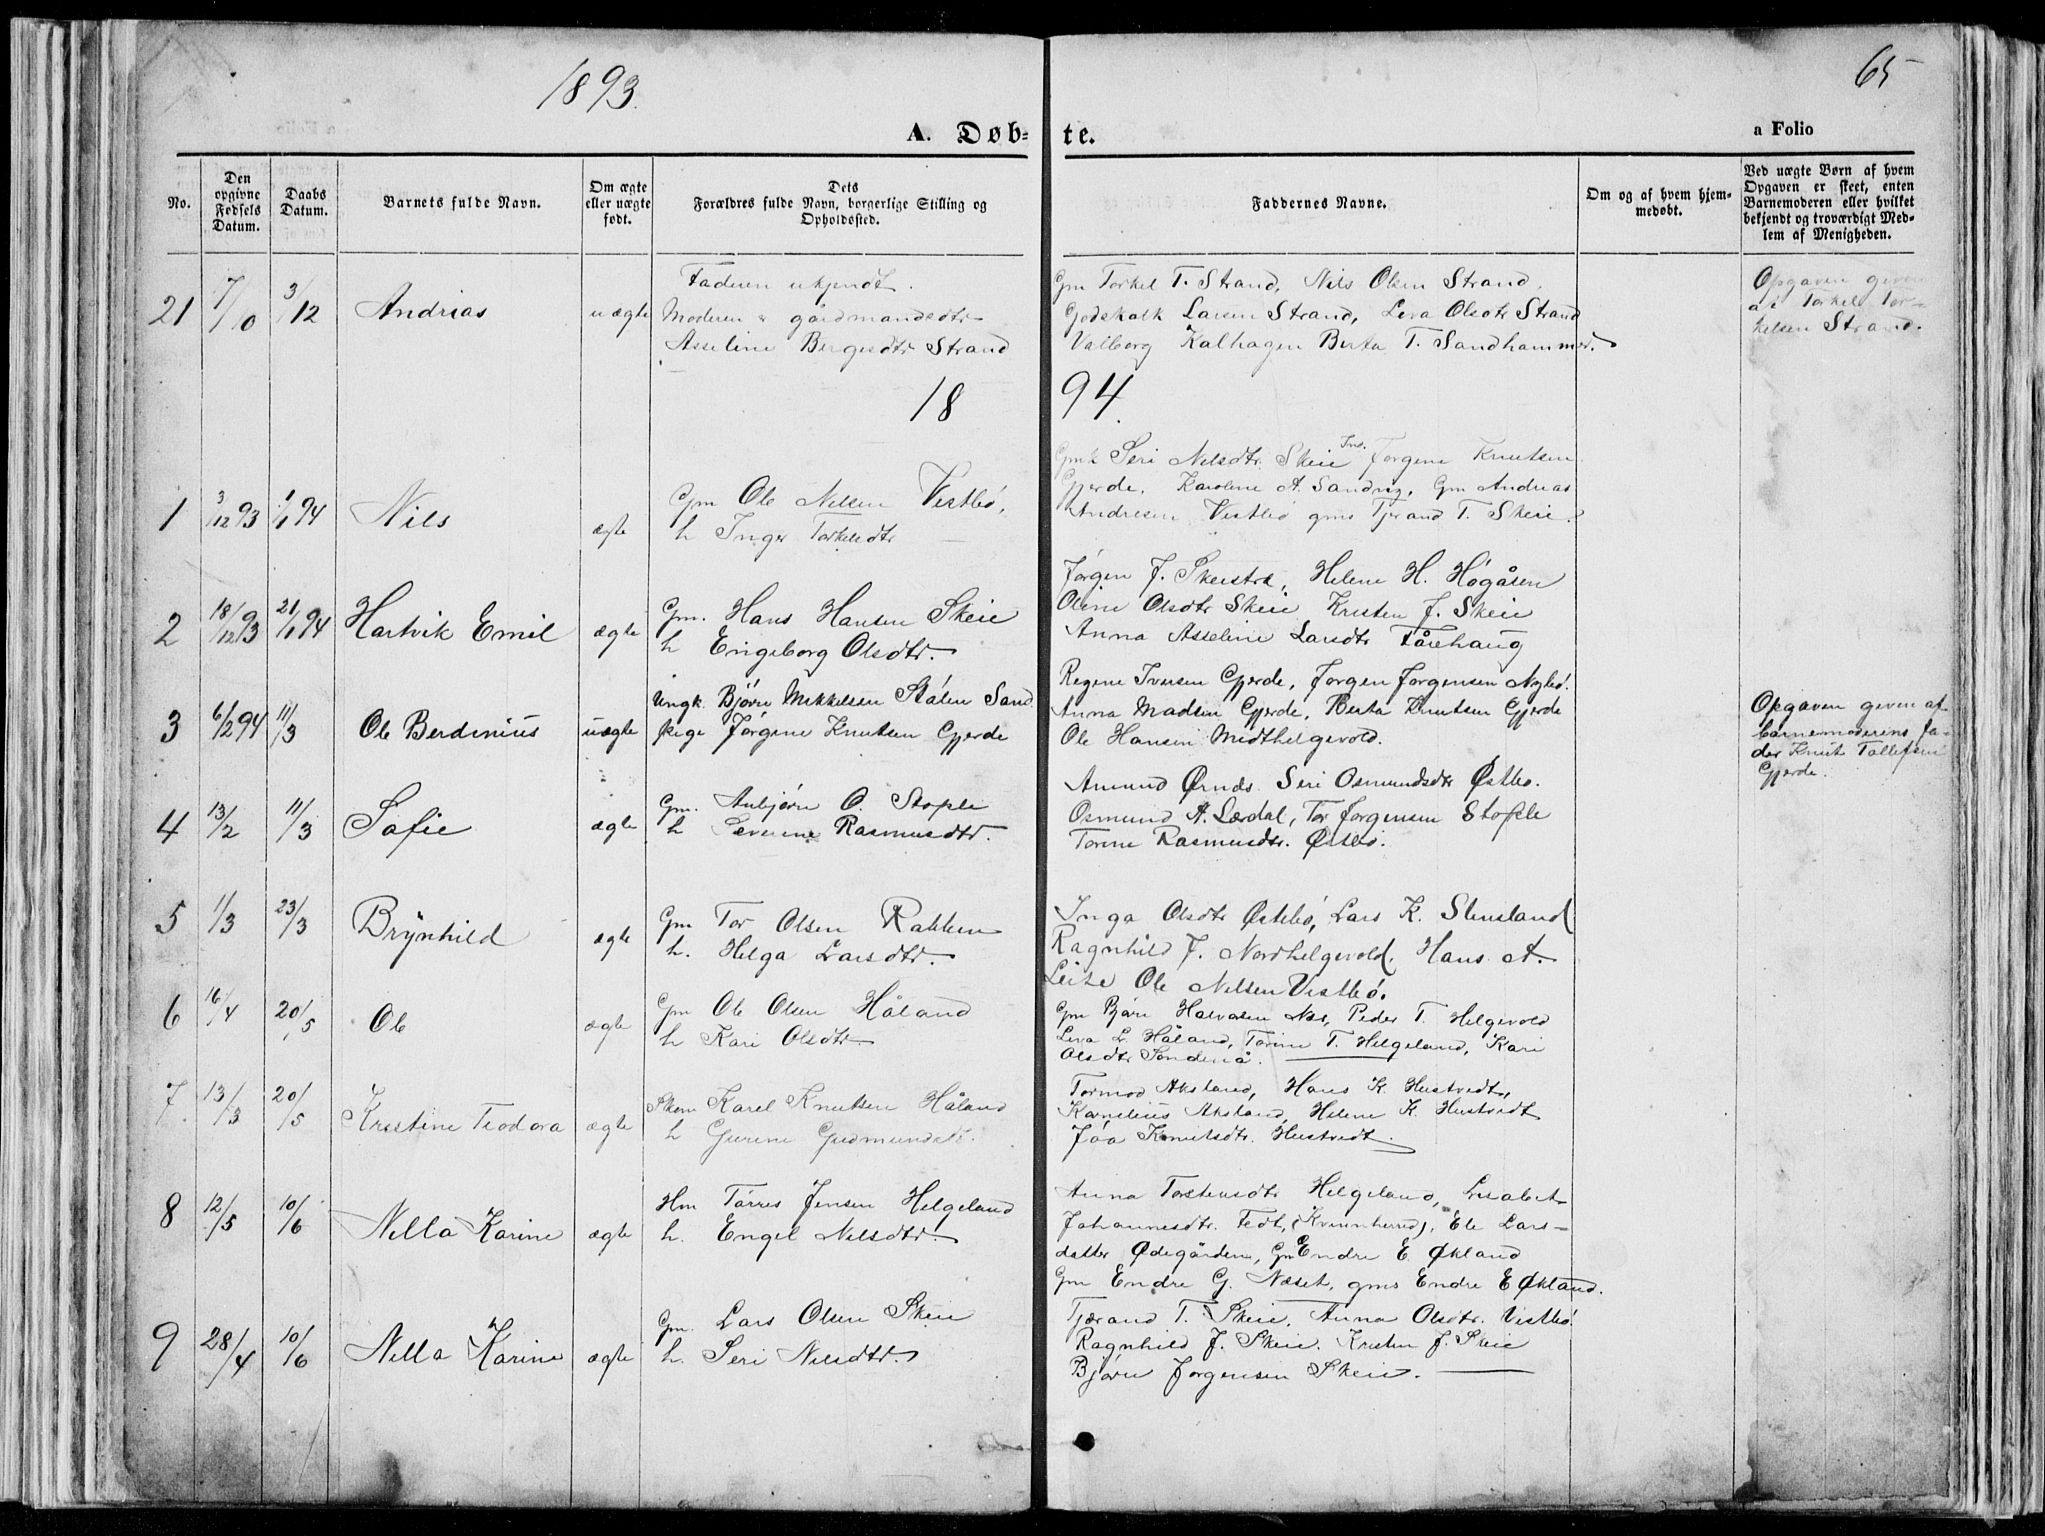 1893.
65
A. Døb-
te.
a Folio
No.
Den
opgivne
Fødsels
Datum.
Daabs
Datum.
Barnets fulde Navn.
Om ægte
eller uægte
født.
Dets
Forældres fulde Navn, borgerlige Stilling og
Opholdssted.
Faddernes Navne.
Om og af hvem hjem-
medøbt.
Ved uægte Børn af hvem
Opgaven er skeet, enten
Barnemoderen eller hvilket
bekjendt og troværdigt Med-
lem af Menigheden.
21 7/10 3/12 Andrias uægte
Faderen ukjendt.
Moderen e gårdmandsdtr
Asseline Bergesdtr Strand
Gm Torkel T. Strand, Nils Olsen Strand,
Godskalk Larsen Strand, Leva Olsdtr Strand
Valborg Kalhagen Berta T. Sandhammer.
Opgaven given
af Torkel Tor-
kelsen Strand.
18 94.
1 3/12 93 1/1 94 Nils ægte
Gm Ole Nelsen Vestbø,
h Inger Torkelsdtr
Gmk Seri Nelsdtr. Skeie Jørgine Knutsen
Gjerde, Karoline A. Sandvig, Gm Andreas
Andresen Vestbø gms Tjerand T. Skeie.
2 18/12 93 21/1 94 Hartvik Emil ægte
Gm. Hans Hansen Skeie
h Engeborg Olsdtr.
Jørgen J. Skeistra, Helene H. Høgåsen
Oline Olsdtr Skeie Kristen J. Skeie
Anna Asseline Larsdtr Fårehaug
3 6/2 94 11/3 Ole Berdinius uægte
Ungk. Bjørn Mikkelsen Stølen Sand
Pige Jørgine Knutsen Gjerde
Regine Iversen Gjerde, Jørgen Jørgensen Nybø.
Anna Madsen Gjerde, Berta Knutsen Gjerde
Ole Hansen Midthelgevold.
Opgaven given af
barnemoderens fa-
der Knut Tollefsen
Gjerde.
4 13/2 11/3 Sofie ægte
Gm. Anbjørn O. Stople
h Severine Rasmusdtr.
Amund Ørnds Seri Osmundsdtr Østbø.
Osmund A. Lærdal, Tor Jørgensen Stople
Torine Rasmusdtr. Østbø.
5 1/3 23/3 Brynhild ægte
Gm Tor Olsen Rakken
h. Helga Larsdtr.
Inga Olsdtr Østebø, Lars K. Stensland
Ragnhild J. Nordhelgevold, Hans A.
Leite Ole Nelsen Vestbø.
6 16/4 20/5 Ole ægte
Gm Ole Olsen Håland
h Kari Olsdtr.
Gm Bjørn Halvorsen Nes, Peder T. Helgevold
Leva L. Håland, Torine T. Helgeland, Kari
Olsdtr Søndenå.
7 13/3 20/5 Kristine Teodora ægte
Skom Karel Knutsen Håland
h Gurine Gudmundsdtr.
Tormod Aksland, Hans K. Hustvedt,
Kornelius Aksland, Helene K. Hustvedt
Jóa Knutsdtr. Hustvedt.
8 12/5 10/6 Nella Karine ægte
Hm Tørres Jensen Helgeland
h. Engel Nelsdtr.
Anna Torstensdtr Helgeland, Lisabet
Johannesdtr. Tedt, (Kvinnherred), Ele Lars-
datter Ødegården, Gm Endre E. Økland
Gm Endre G. Næset, gms Endre E Økland.
9 28/4 10/6 Nella Karine ægte
Gm. Lars Olsen Skeie
h. Seri Nelsdtr.
Tjærand T. Skeie, Anna Olsdtr. Vestbø.
Ragnhild J. Skeie. Kristen J. Skeie
Bjørn Jørgensen Skeie.